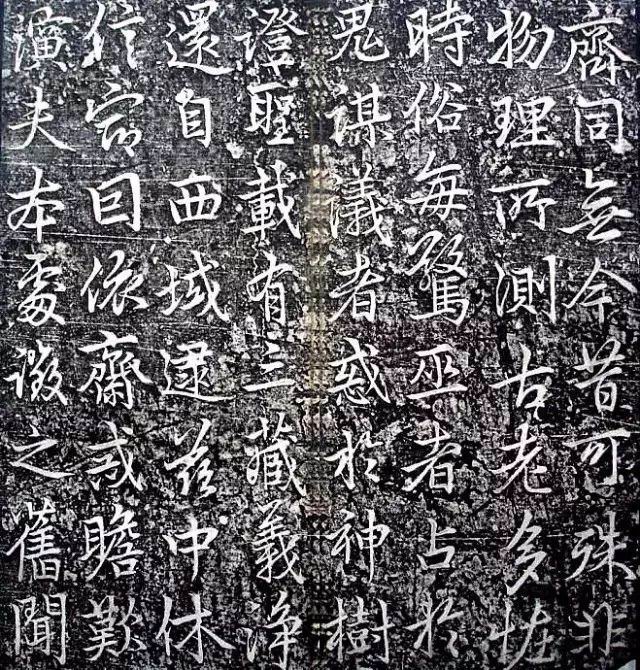 齊同無今昔可殊非
物理所測古老多恠
時俗每驚巫者占於
鬼謀議者惑於神樹
證聖載有三藏義淨
還自西域逮茲中休
信宿因依齋戒瞻歎
演夫本處徵之舊聞